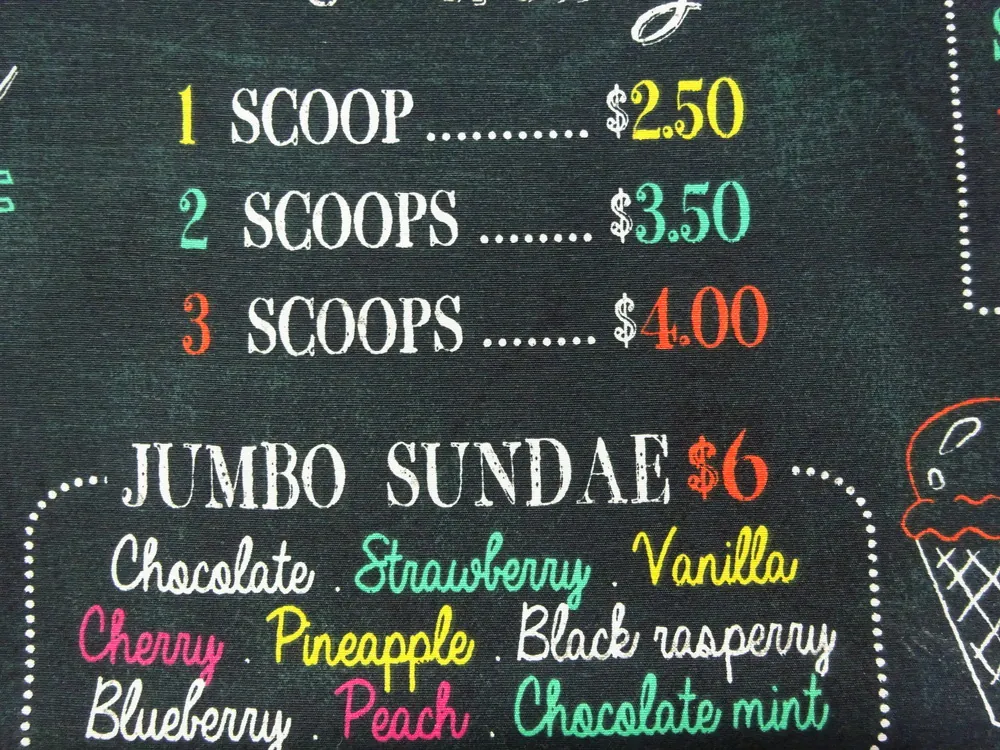 1 SCOOP ............ $2.50
2 SCOOPS ........ $3.50
3 SCOOPS ........ $4.00
JUMBO SUNDAE $6
Chocolate . Strawberry . Vanilla
Cherry . Pineapple . Black rasperry
Blueberry . Peach . Chocolate mint